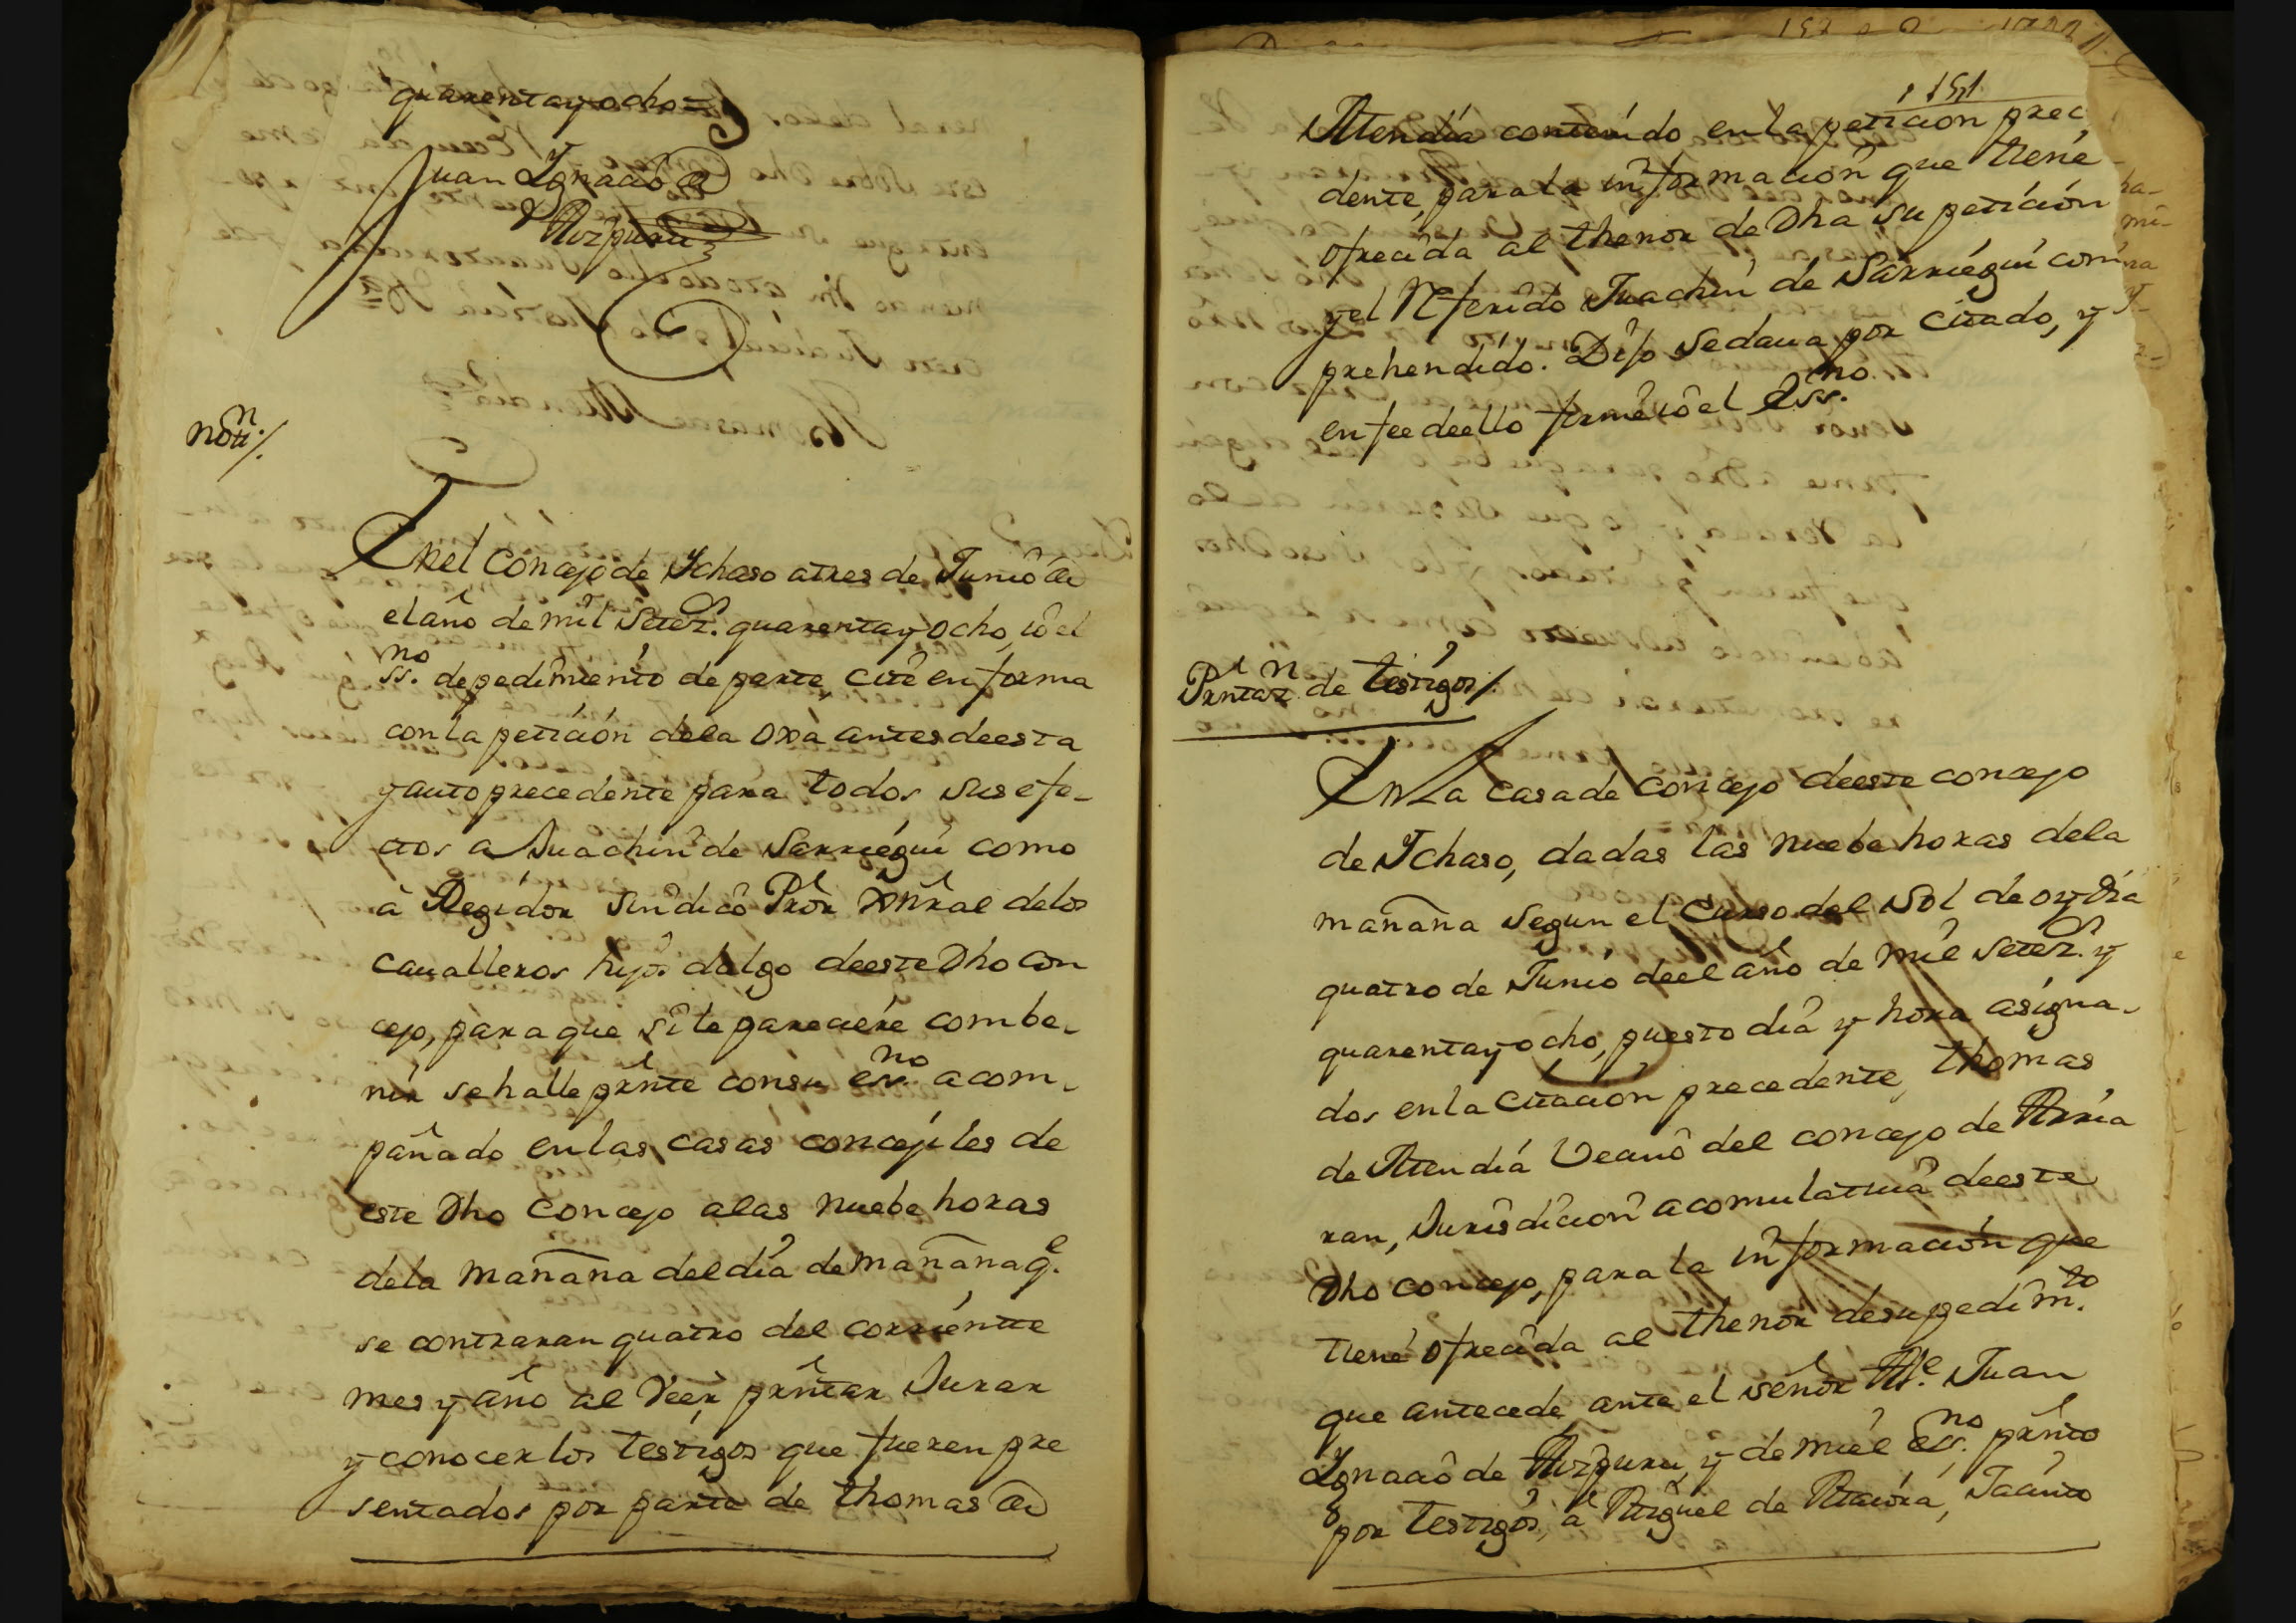 quarenta y ocho =
Juan Ygnacio de
Aizpuru
notn./.
En el Concejo de Ychaso a tres de Junio de
el año de mil Setez.s quarenta y ocho, io el
ss.no de pedimiento de parte, cite en forma
con la petición de la oxa antes de esta
y auto precedente para todos sus efe-
ctos a Juachin de Sarriegui como
à Regidor Sindico Pror Xnral de los
caualleros hijos dalgo de este Dho Con
cejo, para que si le pareciere combe-
nir se halle prnte con su ess.no acom-
pañado en las casas concejiles de
este Dho Concejo a las nuebe horas
de la mañana del día de mañana q.e
se contraran quatro del corriente
mes y año al Veer prntar Jurar
y conocer los testigos que fueren pre
sentados por parte de thomas de
151
Atendia contenido en la petición prec
dente, para la información que tiene
ofrecida al thenor de Dha su petición
y el Referido Juachin de Sarriegui com
prehendido. Dijo se daua por citado, y
en fee de ello firmé io el Ess.no
Prntazn. de testigos/.
En La casa de Concejo de este concejo
de Ychaso, dadas las nuebe horas de la
mañana segun el Curso del Sol de oy día
quatro de Junio de el año de mil setez.s y
quarenta y ocho, puesto día y hora asigna-
dos en la citación precedente, thomas
de Atendia Vecino del concejo de Arria
ran, Jurisdición acomulatiua de este
Dho concejo, para la información que
tiene ofrecida al thenor de su pedim.to
que antecede, ante el señor Al.e Juan
Ygnacio de Aizpuru, y de mi el ess.no prnto
por testigos, à Miguel de Alauira, Jacinto